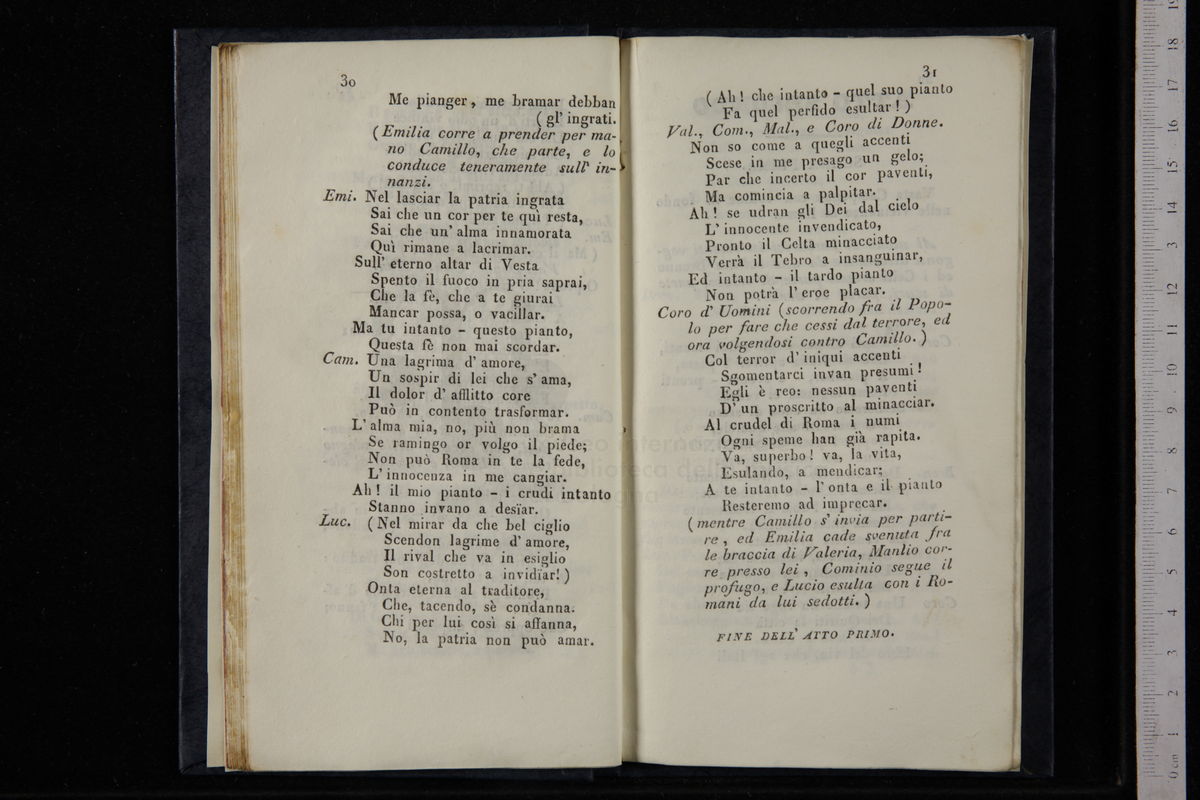 30
Me pianger, me bramar debban
( gl' ingrati.
( Emilia corre a prender per ma-
no Camillo, che parte, e lo
conduce teneramente sull' in-
nanzi.
Emi. Nel lasciar la patria ingrata
Sai che un cor per te quì resta,
Sai che un' alma innamorata
Quì rimane a lacrimar.
Sull' eterno altar di Vesta
Spento il fuoco in pria saprai,
Che la fè, che a te giurai
Mancar possa, o vacillar.
Ma tu intanto - questo pianto,
Questa fè non mai scordar.
Cam. Una lagrima d' amore,
Un sospir di lei che s' ama,
Il dolor d' afflitto core
Può in contento trasformar.
L' alma mia, no, più non brama
Se ramingo or volgo il piede;
Non può Roma in te la fede,
L' innocenza in me cangiar.
Ah! il mio pianto - i crudi intanto
Stanno invano a desïar.
Luc. ( Nel mirar da che bel ciglio
Scendon lagrime d' amore,
Il rival che va in esiglio
Son costretto a invidïar! )
Onta eterna al traditore,
Che, tacendo, sè condanna.
Chi per lui così si affanna,
No, la patria non può amar.
31
( Ah! che intanto - quel suo pianto
Fa quel perfido esultar! )
Val., Com., Mal., e Coro di Donne.
Non so come a quegli accenti
Scese in me presago un gelo;
Par che incerto il cor paventi,
Ma comincia a palpitar.
Ah! se udran gli Dei dal cielo
L' innocente invendicato,
Pronto il Celta minacciato
Verrà il Tebro a insanguinar,
Ed intanto - il tardo pianto
Non potrà l' eroe placar.
Coro d' Uomini (scorrendo fra il Popo-
lo per fare che cessi dal terrore, ed
ora volgendosi contro Camillo. )
Col terror d' iniqui accenti
Sgomentarci invan presumi!
Egli è reo: nessun paventi
D' un proscritto al minacciar.
Al crudel di Roma i numi
Ogni speme han già rapita.
Va, superbo! va, la vita,
Esulando, a mendicar;
A te intanto - l' onta e il pianto
Resteremo ad imprecar.
( mentre Camillo s' invia per parti-
re, ed Emilia cade svenuta fra
le braccia di Valeria, Manlio cor-
re presso lei, Cominio segue il
profugo, e Lucio esulta con i Ro-
mani da lui sedotti. )
FINE DELL' ATTO PRIMO.